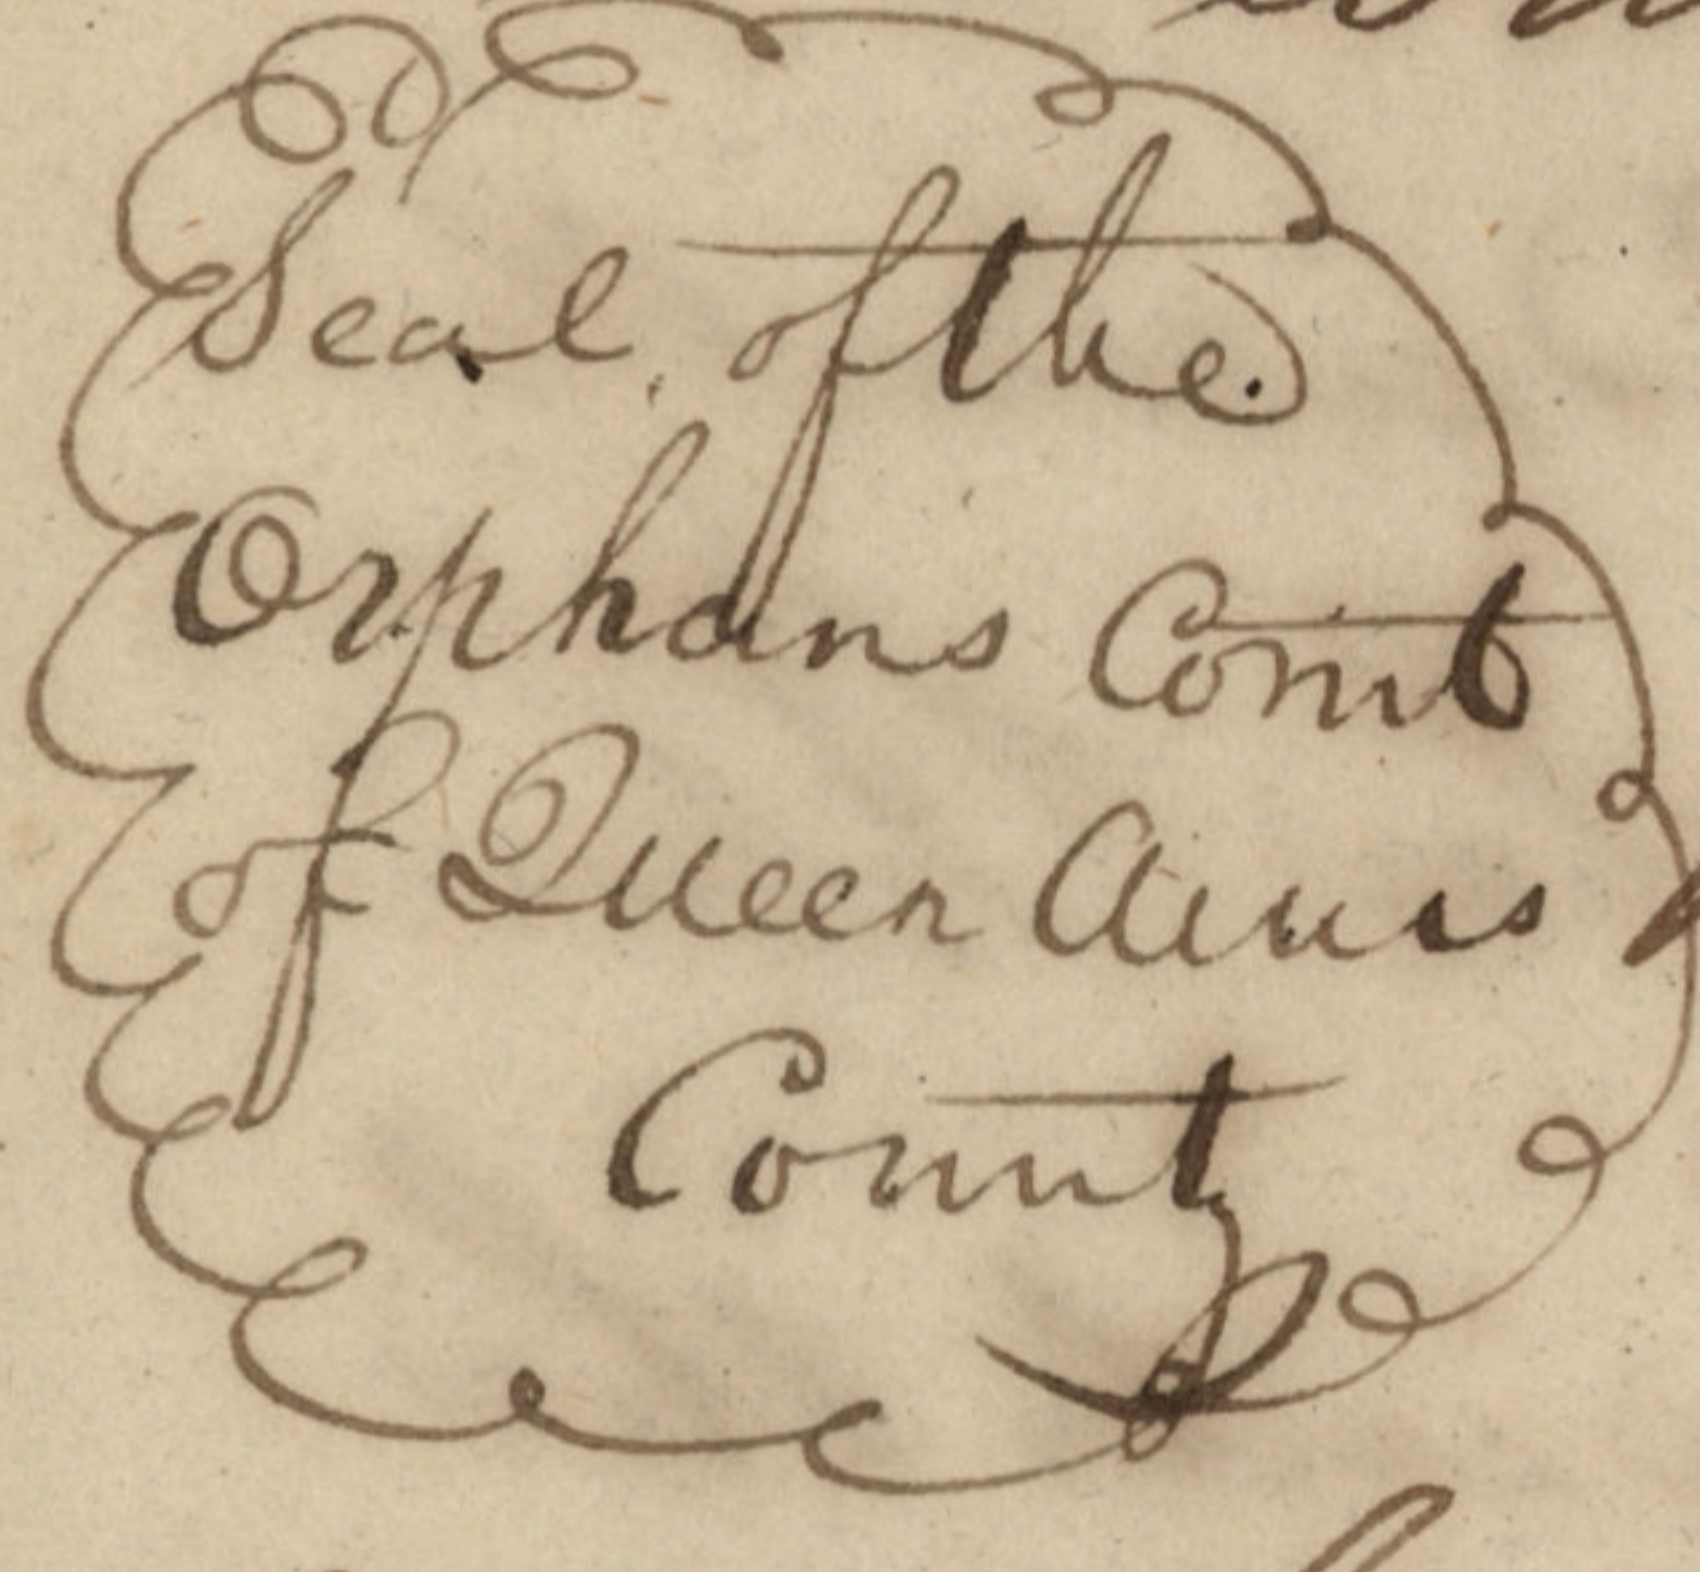 Seal of the
Orphans Court
of Queen Anns
County